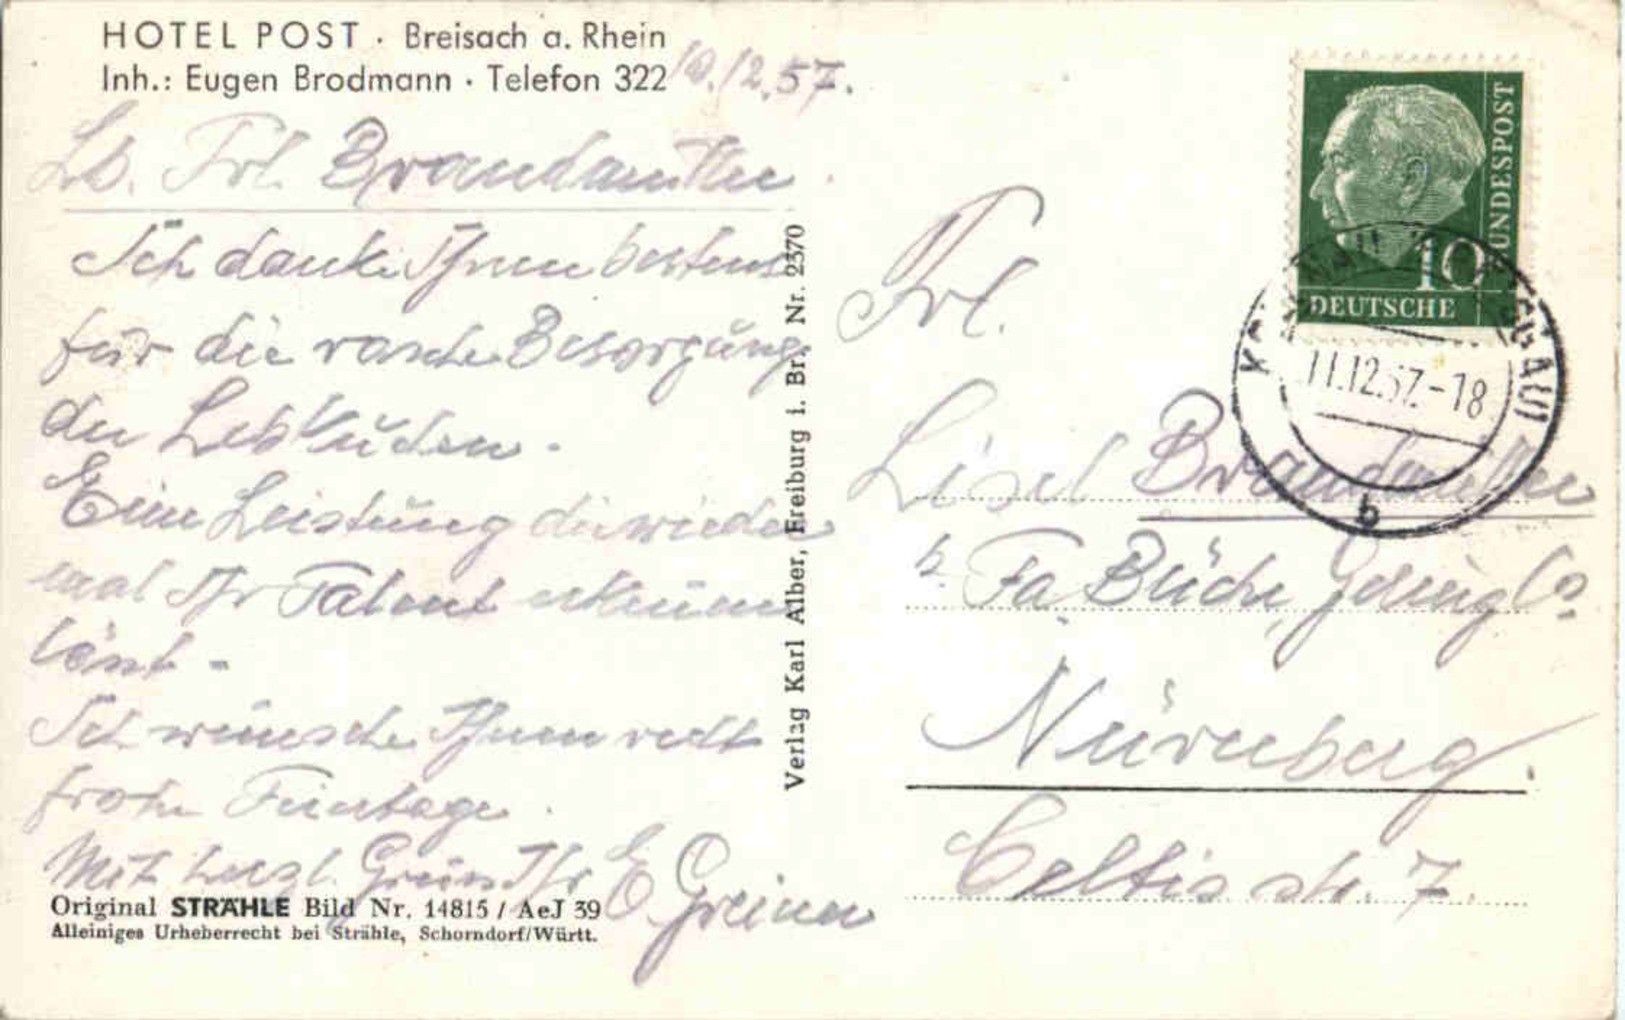 HOTEL POST · Breisach a. Rhein
Inh.: Eugen Brodmann · Telefon 322
10.12.57.
Lb. Frl. Brandmüller
Ich danke Ihnen bestens
für die rasche Besorgung
der Lebkuchen.
Eine Leistung die wieder
mal Ihr Talent erkennen
lässt -
Ich wünsche Ihnen recht
frohe Feiertage.
Mit herzl. Gruss Ihr E.
Original STRÄHLE Bild Nr. 14815 / AeJ 39
Alleiniges Urheberrecht bei Strähle, Schorndorf/Württ.
Verlag Karl Alber, Freiburg i. Br. Nr. 2570
BUNDESPOST
10
DEUTSCHE
11.12.57.-18
b
Frl.
Lisel Brandmüller
Fa.
Nürnberg.
Celtisstr. 7.